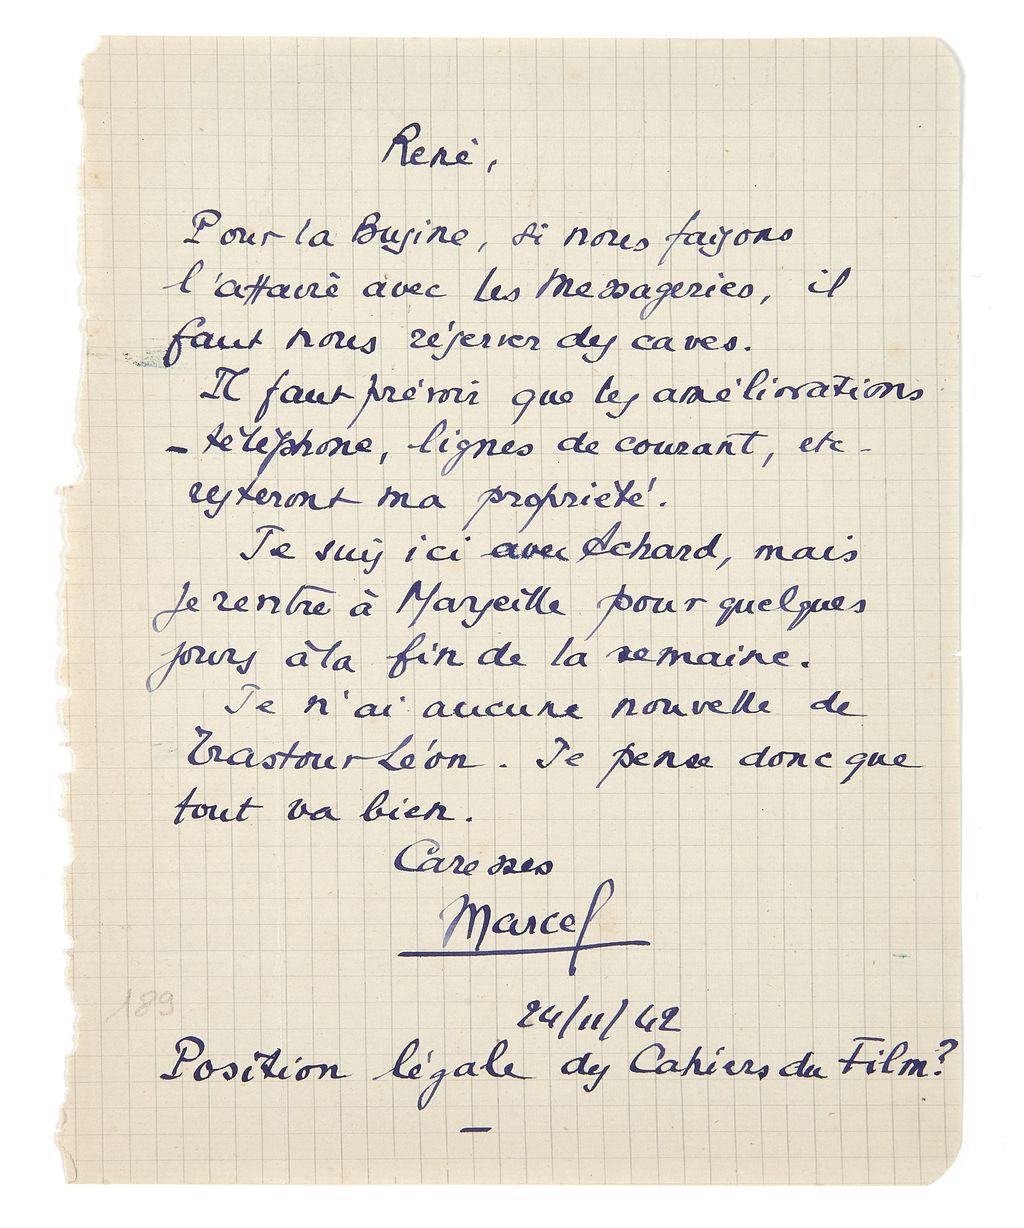 René,
Pour la Buzine, si nous faisons
l'affaire avec les Messageries, il
faut nous réserver des caves.
Il faut prévoir que les améliorations
- téléphone, lignes de courant, etc -
resteront ma propriété.
Je suis ici avec Achard, mais
je rentre à Marseille pour quelques
jours à la fin de la semaine.
Je n'ai aucune nouvelle de
Trastour-Léon. Je pense donc que
tout va bien.
Caresses
Marcel
189
24/11/42
Position légale des Cahiers du Film?